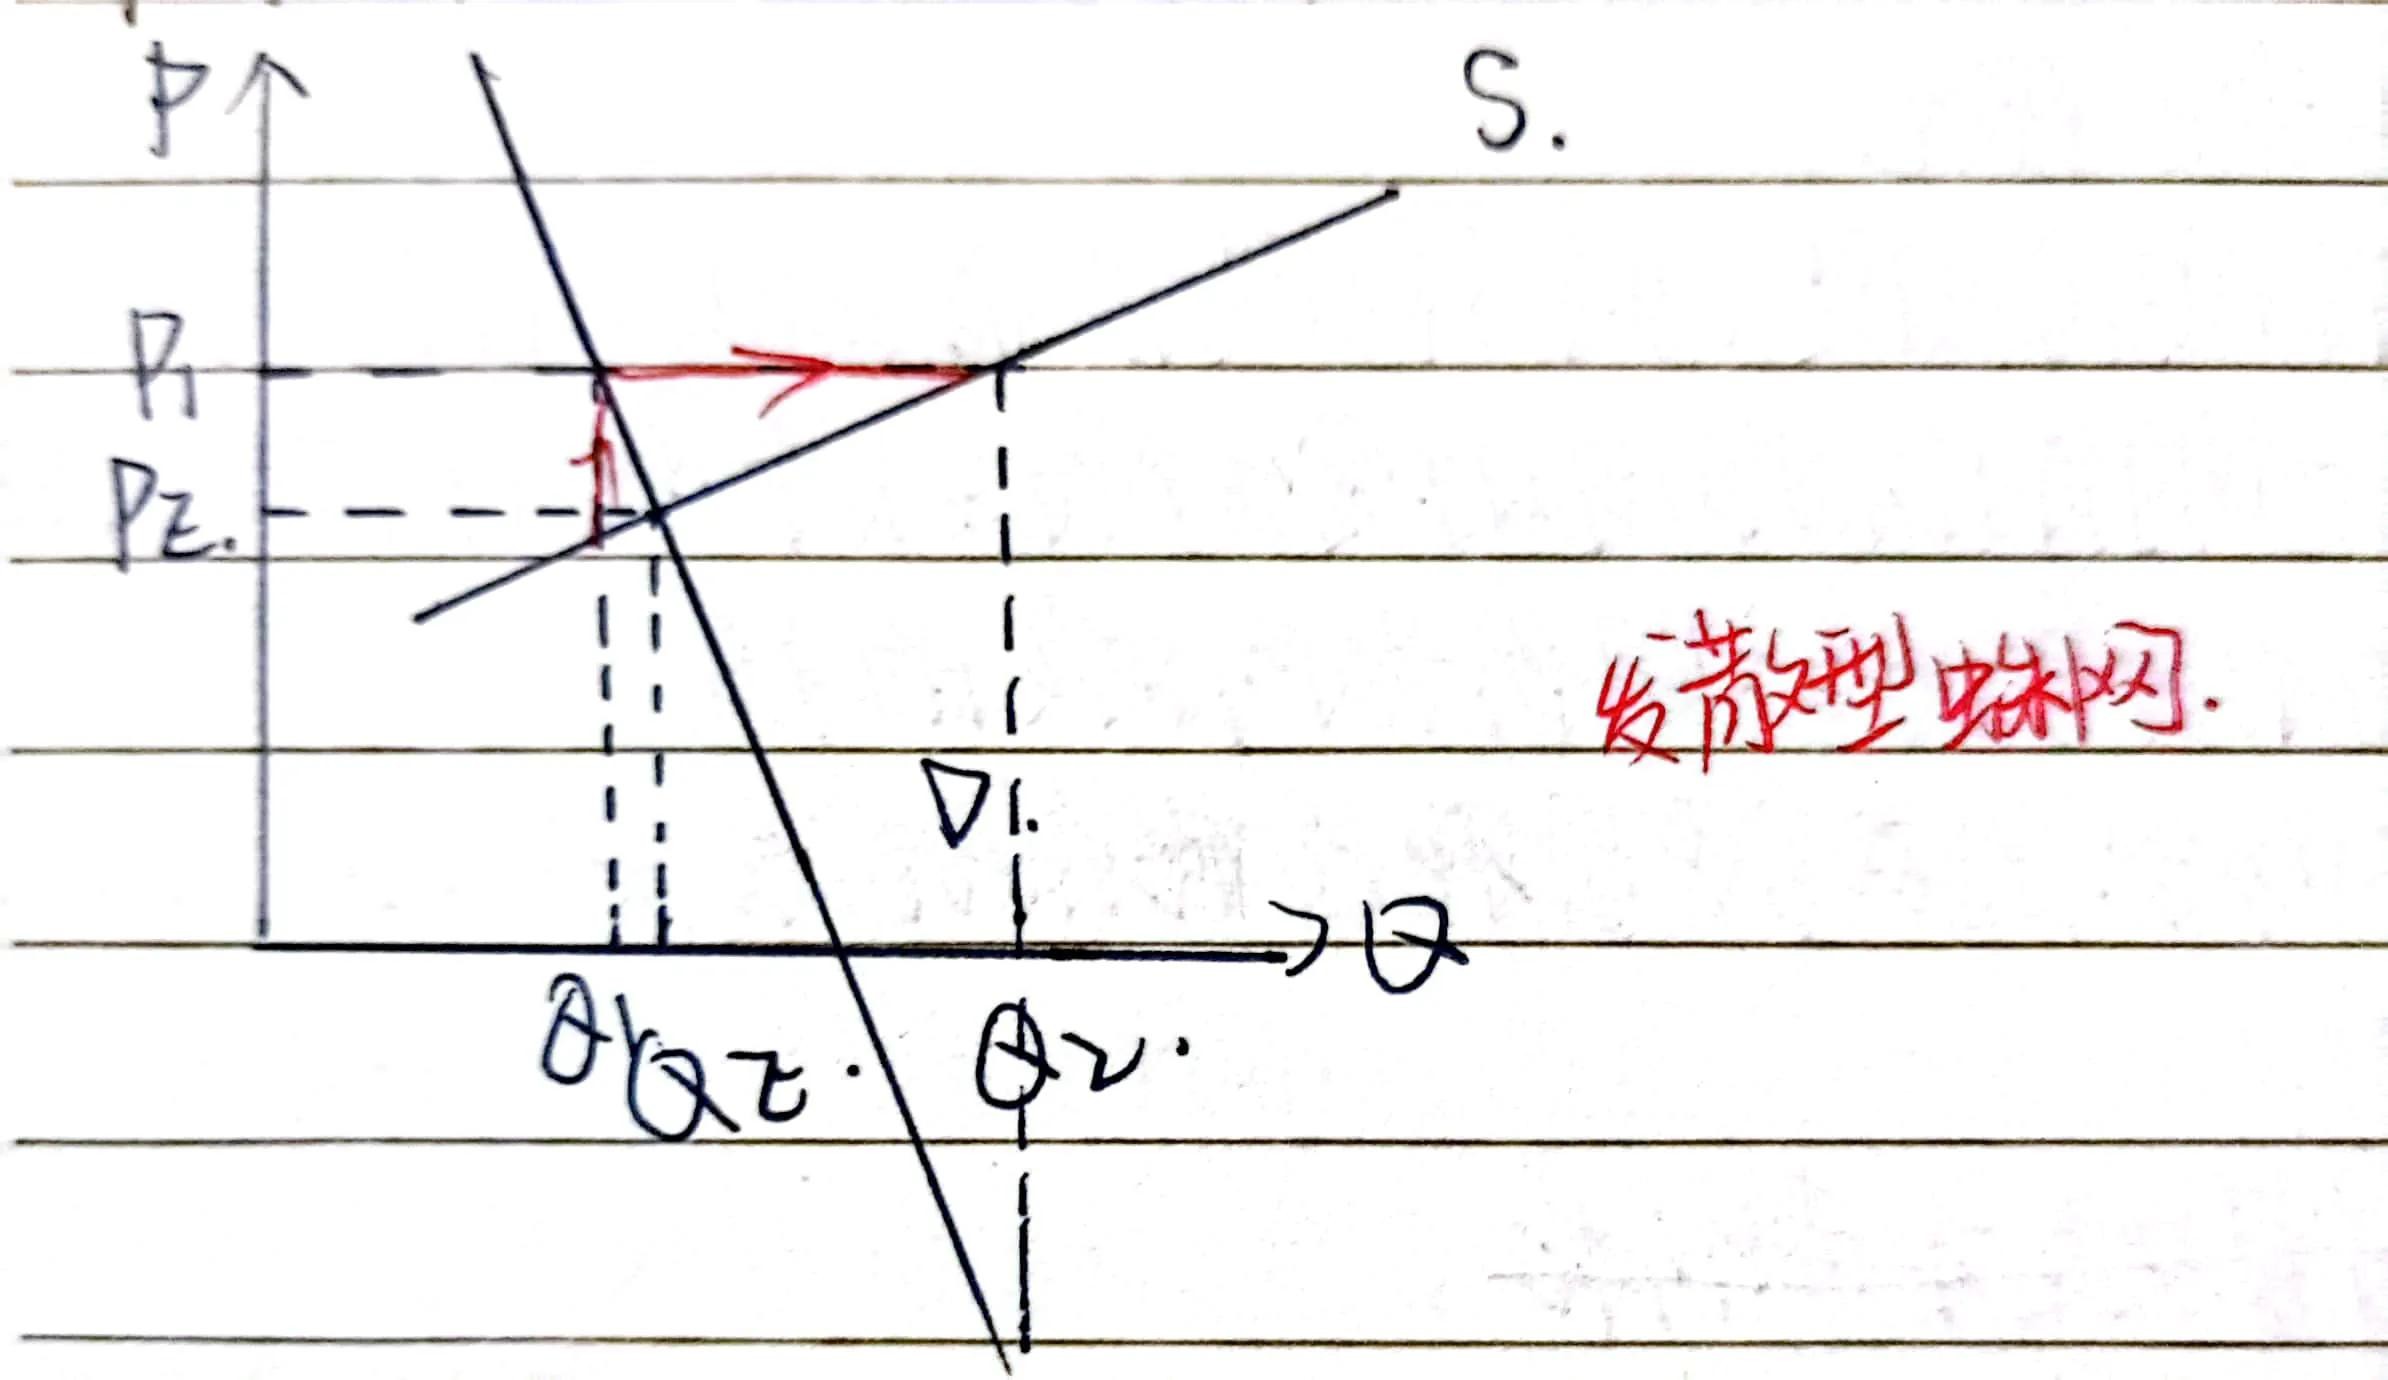 P
S.
P1
PE.
发散型蛛网.
D.
Q
Q1
QE.
Q2.